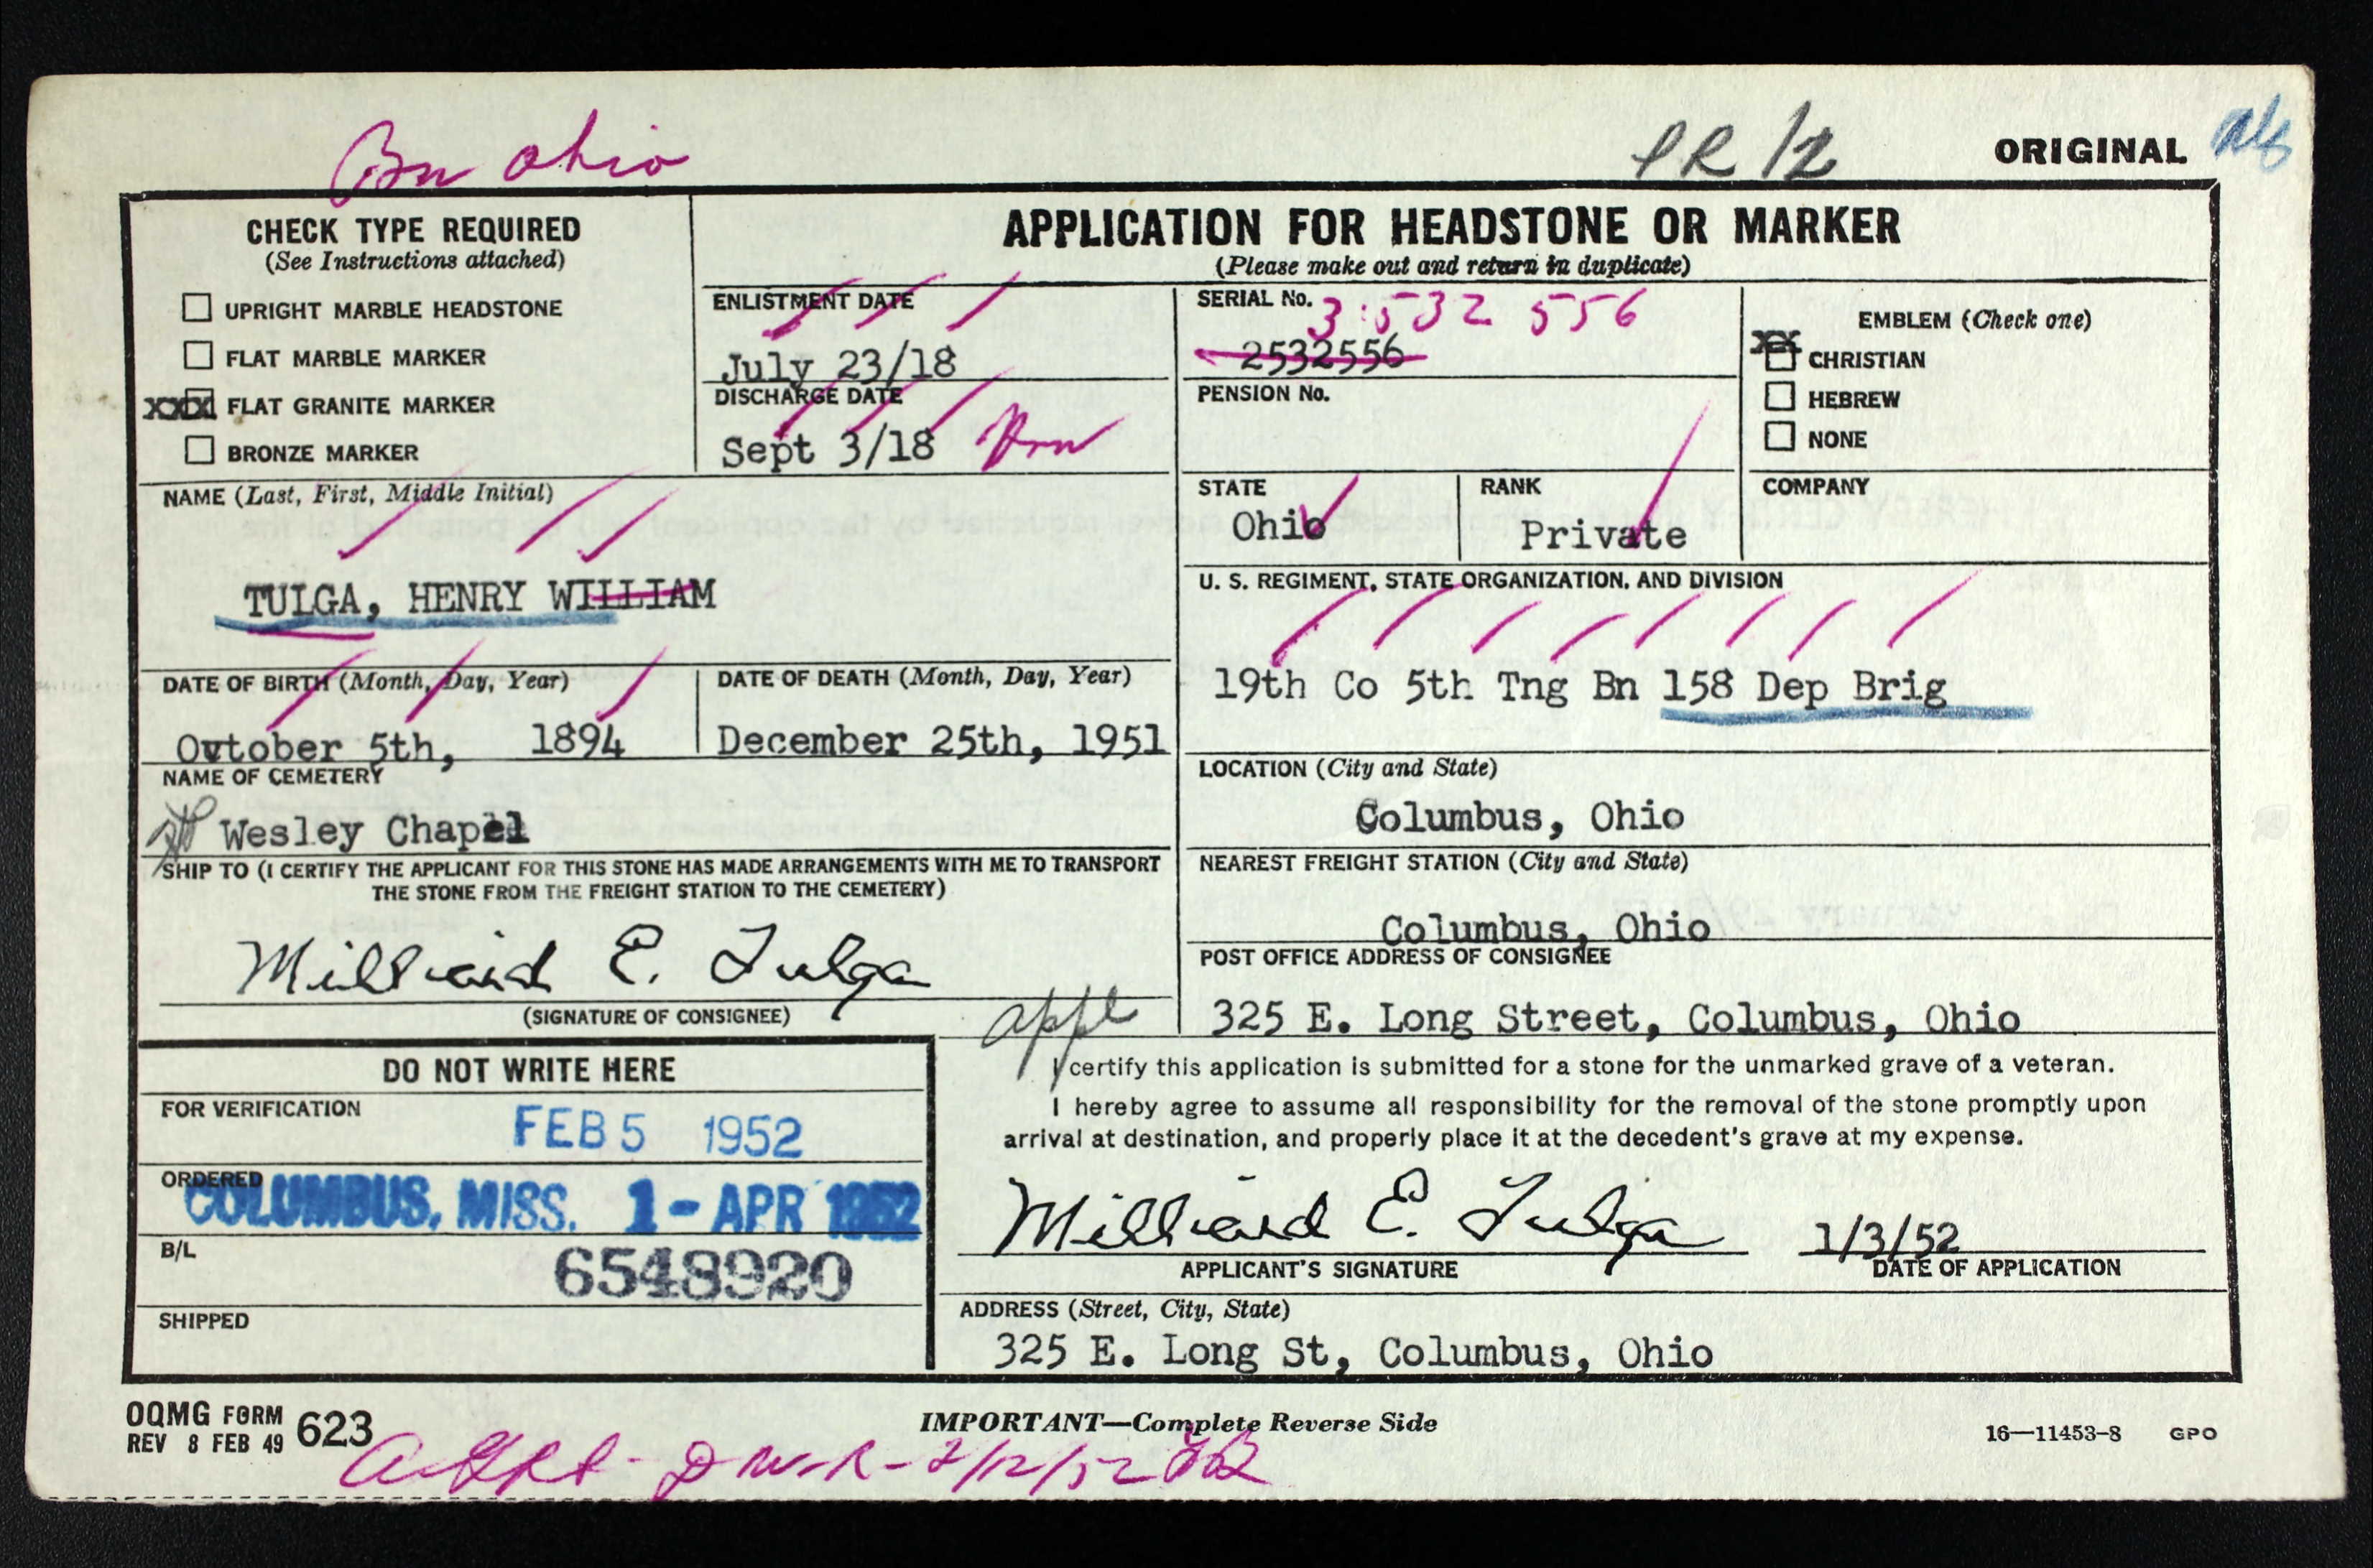 Bn Ohio
PR/2
ORIGINAL
CHECK TYPE REQUIRED
(See Instructions attached)
UPRIGHT MARBLE HEADSTONE
FLAT MARBLE MARKER
XXX FLAT GRANITE MARKER
BRONZE MARKER
APPLICATION FOR HEADSTONE OR MARKER
(Please make out and return in duplicate)
ENLISTMENT DATE
July 23/18
DISCHARGE DATE
Sept 3/18
SERIAL No. 3 532 556
2532556
PENSION No.
EMBLEM (Check one)
XX CHRISTIAN
HEBREW
NONE
NAME (Last, First, Middle Initial)
TULGA, HENRY WILLIAM
STATE
Ohio
RANK
Private
COMPANY
U. S. REGIMENT, STATE ORGANIZATION, AND DIVISION
19th Co 5th Tng Bn 158 Dep Brig
DATE OF BIRTH (Month, Day, Year)
Ovtober 5th, 1894
DATE OF DEATH (Month, Day, Year)
December 25th, 1951
NAME OF CEMETERY
Wesley Chapel
LOCATION (City and State)
Columbus, Ohio
SHIP TO (I CERTIFY THE APPLICANT FOR THIS STONE HAS MADE ARRANGEMENTS WITH ME TO TRANSPORT
THE STONE FROM THE FREIGHT STATION TO THE CEMETERY)
Milliard E. Tulga
(SIGNATURE OF CONSIGNEE)
NEAREST FREIGHT STATION (City and State)
Columbus, Ohio
POST OFFICE ADDRESS OF CONSIGNEE
325 E. Long Street, Columbus, Ohio
appl
DO NOT WRITE HERE
FOR VERIFICATION
FEB 5 1952
ORDERED
COLUMBUS, MISS. 1 - APR 1952
B/L
6548920
SHIPPED
I certify this application is submitted for a stone for the unmarked grave of a veteran.
I hereby agree to assume all responsibility for the removal of the stone promptly upon
arrival at destination, and properly place it at the decedent's grave at my expense.
Milliard E. Tulga
1/3/52
APPLICANT'S SIGNATURE
DATE OF APPLICATION
ADDRESS (Street, City, State)
325 E. Long St, Columbus, Ohio
OQMG FORM 623
REV 8 FEB 49
IMPORTANT—Complete Reverse Side
16—11453-8 GPO
2/12/52